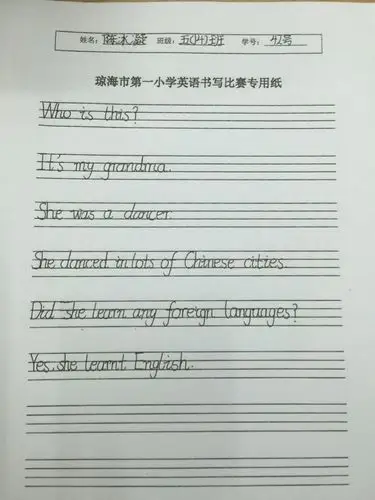 姓名: 陈冰凝 班级: 五(14)班 学号: 42号
琼海市第一小学英语书写比赛专用纸
Who is this?
It's my grandma.
She was a dancer.
She danced in lots of Chinese cities.
Did she learn any foreign languages?
Yes, she learnt English.